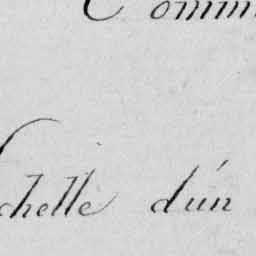 Comm
chelle d'un